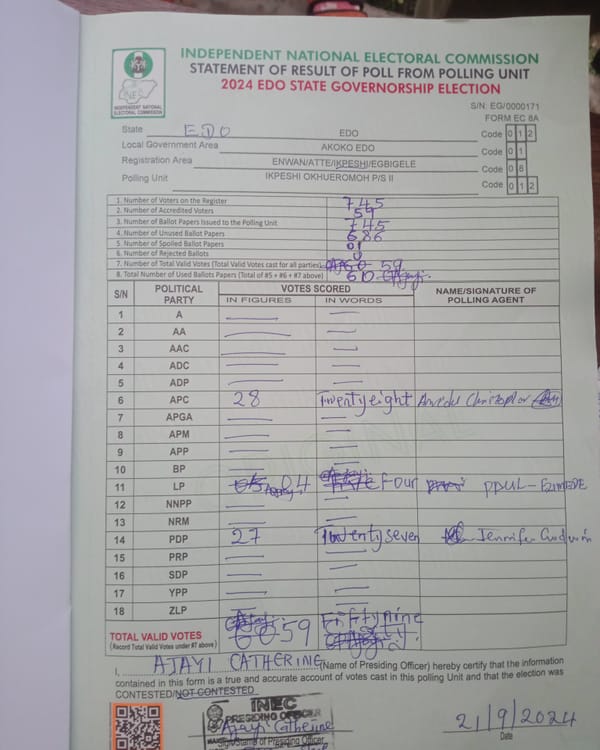 INDEPENDENT NATIONAL ELECTORAL COMMISSION
STATEMENT OF RESULT OF POLL FROM POLLING UNIT
2024 EDO STATE GOVERNORSHIP ELECTION
INEC
INDEPENDENT NATIONAL
ELECTORAL COMMISSION
S/N: EG/0000171
FORM EC 8A
State EDO EDO Code 0 1 2
Local Government Area AKOKO EDO Code 0 1
Registration Area ENWAN/ATTE/IKPESHI/EGBIGELE Code 0 8
Polling Unit IKPESHI OKHUEROMOH P/S II Code 0 1 2
1. Number of Voters on the Register 745
2. Number of Accredited Voters 59
3. Number of Ballot Papers Issued to the Polling Unit 745
4. Number of Unused Ballot Papers 686
5. Number of Spoiled Ballot Papers 01
6. Number of Rejected Ballots 0
7. Number of Total Valid Votes (Total Valid Votes cast for all parties) 59
8. Total Number of Used Ballots Papers (Total of #5 + #6 + #7 above) 60
S/N POLITICAL PARTY VOTES SCORED NAME/SIGNATURE OF POLLING AGENT
IN FIGURES IN WORDS
1 A
2 AA
3 AAC
4 ADC
5 ADP
6 APC 28 Twenty eight
7 APGA
8 APM
9 APP
10 BP
11 LP 04 Four
12 NNPP
13 NRM
14 PDP 27 Twenty seven Jennifer Godwin
15 PRP
16 SDP
17 YPP
18 ZLP
TOTAL VALID VOTES 59 Fifty nine
(Record Total Valid Votes under #7 above)
I, AJAYI CATHERINE (Name of Presiding Officer) hereby certify that the information
contained in this form is a true and accurate account of votes cast in this polling Unit and that the election was
CONTESTED/NOT CONTESTED
INEC
PRESIDING OFFICER
Ajayi Catherine
Sign/Stamp of Presiding Officer
21/9/2024
Date